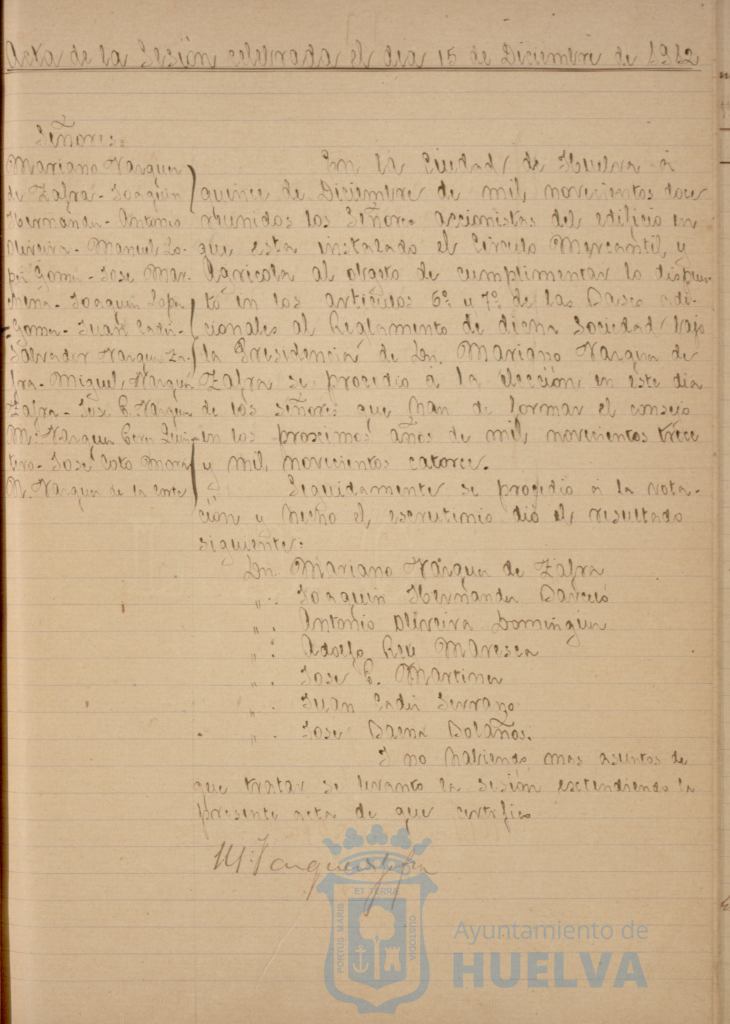 Acta de la Sesión celebrada el dia 15 de Diciembre de 1912
Señores:
Mariano Vazquez
de Zafra - Joaquin
Hernandez - Antonio
Oliveira - Manuel Lo-
pez Gomez - Jose Mar.
Joaquin Lopez
Gomez - Juan Cadiz -
Salvador Vazquez Za-
fra - Miguel Vazquez
Zafra - José E. Vazquez
M. Vazquez
José Coto Mora
M. Vazquez de la Corte
En la Ciudad de Huelva á
quince de Diciembre de mil novecientos doce
reunidos los Señores accionistas del edificio en
que esta instalado el Circulo Mercantil y
Agricola al objeto de cumplimentar lo dispues-
to en los articulos 6º y 7º de las Bases adi-
cionales al Reglamento de dicha Sociedad bajo
la Presidencia de Dn. Mariano Vazquez de
Zafra se procedio á la elección en este dia
de los señores que han de formar el consejo
en los procsimos años de mil novecientos trece
y mil novecientos catorce.
Seguidamente se procedio á la vota-
ción y hecho el escrutinio dió el resultado
siguiente:
Dn. Mariano Vázquez de Zafra
" . Joaquin Hernandez Barceló
" . Antonio Oliveira Dominguez
" . Adolfo Rey Maresca
" . Jose E. Martinez
" . Juan Cadiz Serrano
" . Jose Baena Bolaños.
I no habiendo mas asuntos de
que tratar se levanto la sesión ectendiendo la
presente acta de que certifico
M. Vazquez de Zafra
PORTUS MARIS
ET TERRÆ
CUSTODIA
Ayuntamiento de
HUELVA